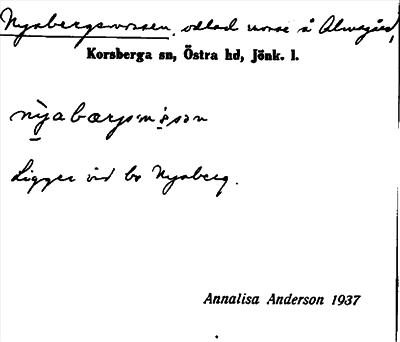 Nyabergsmossen, odlad mosse å Älmagärd,
Korsberga sn, Östra hd, Jönk. l.
nyabærjsmåsən
Ligger vid bs Nyaberg.
Annalisa Anderson 1937